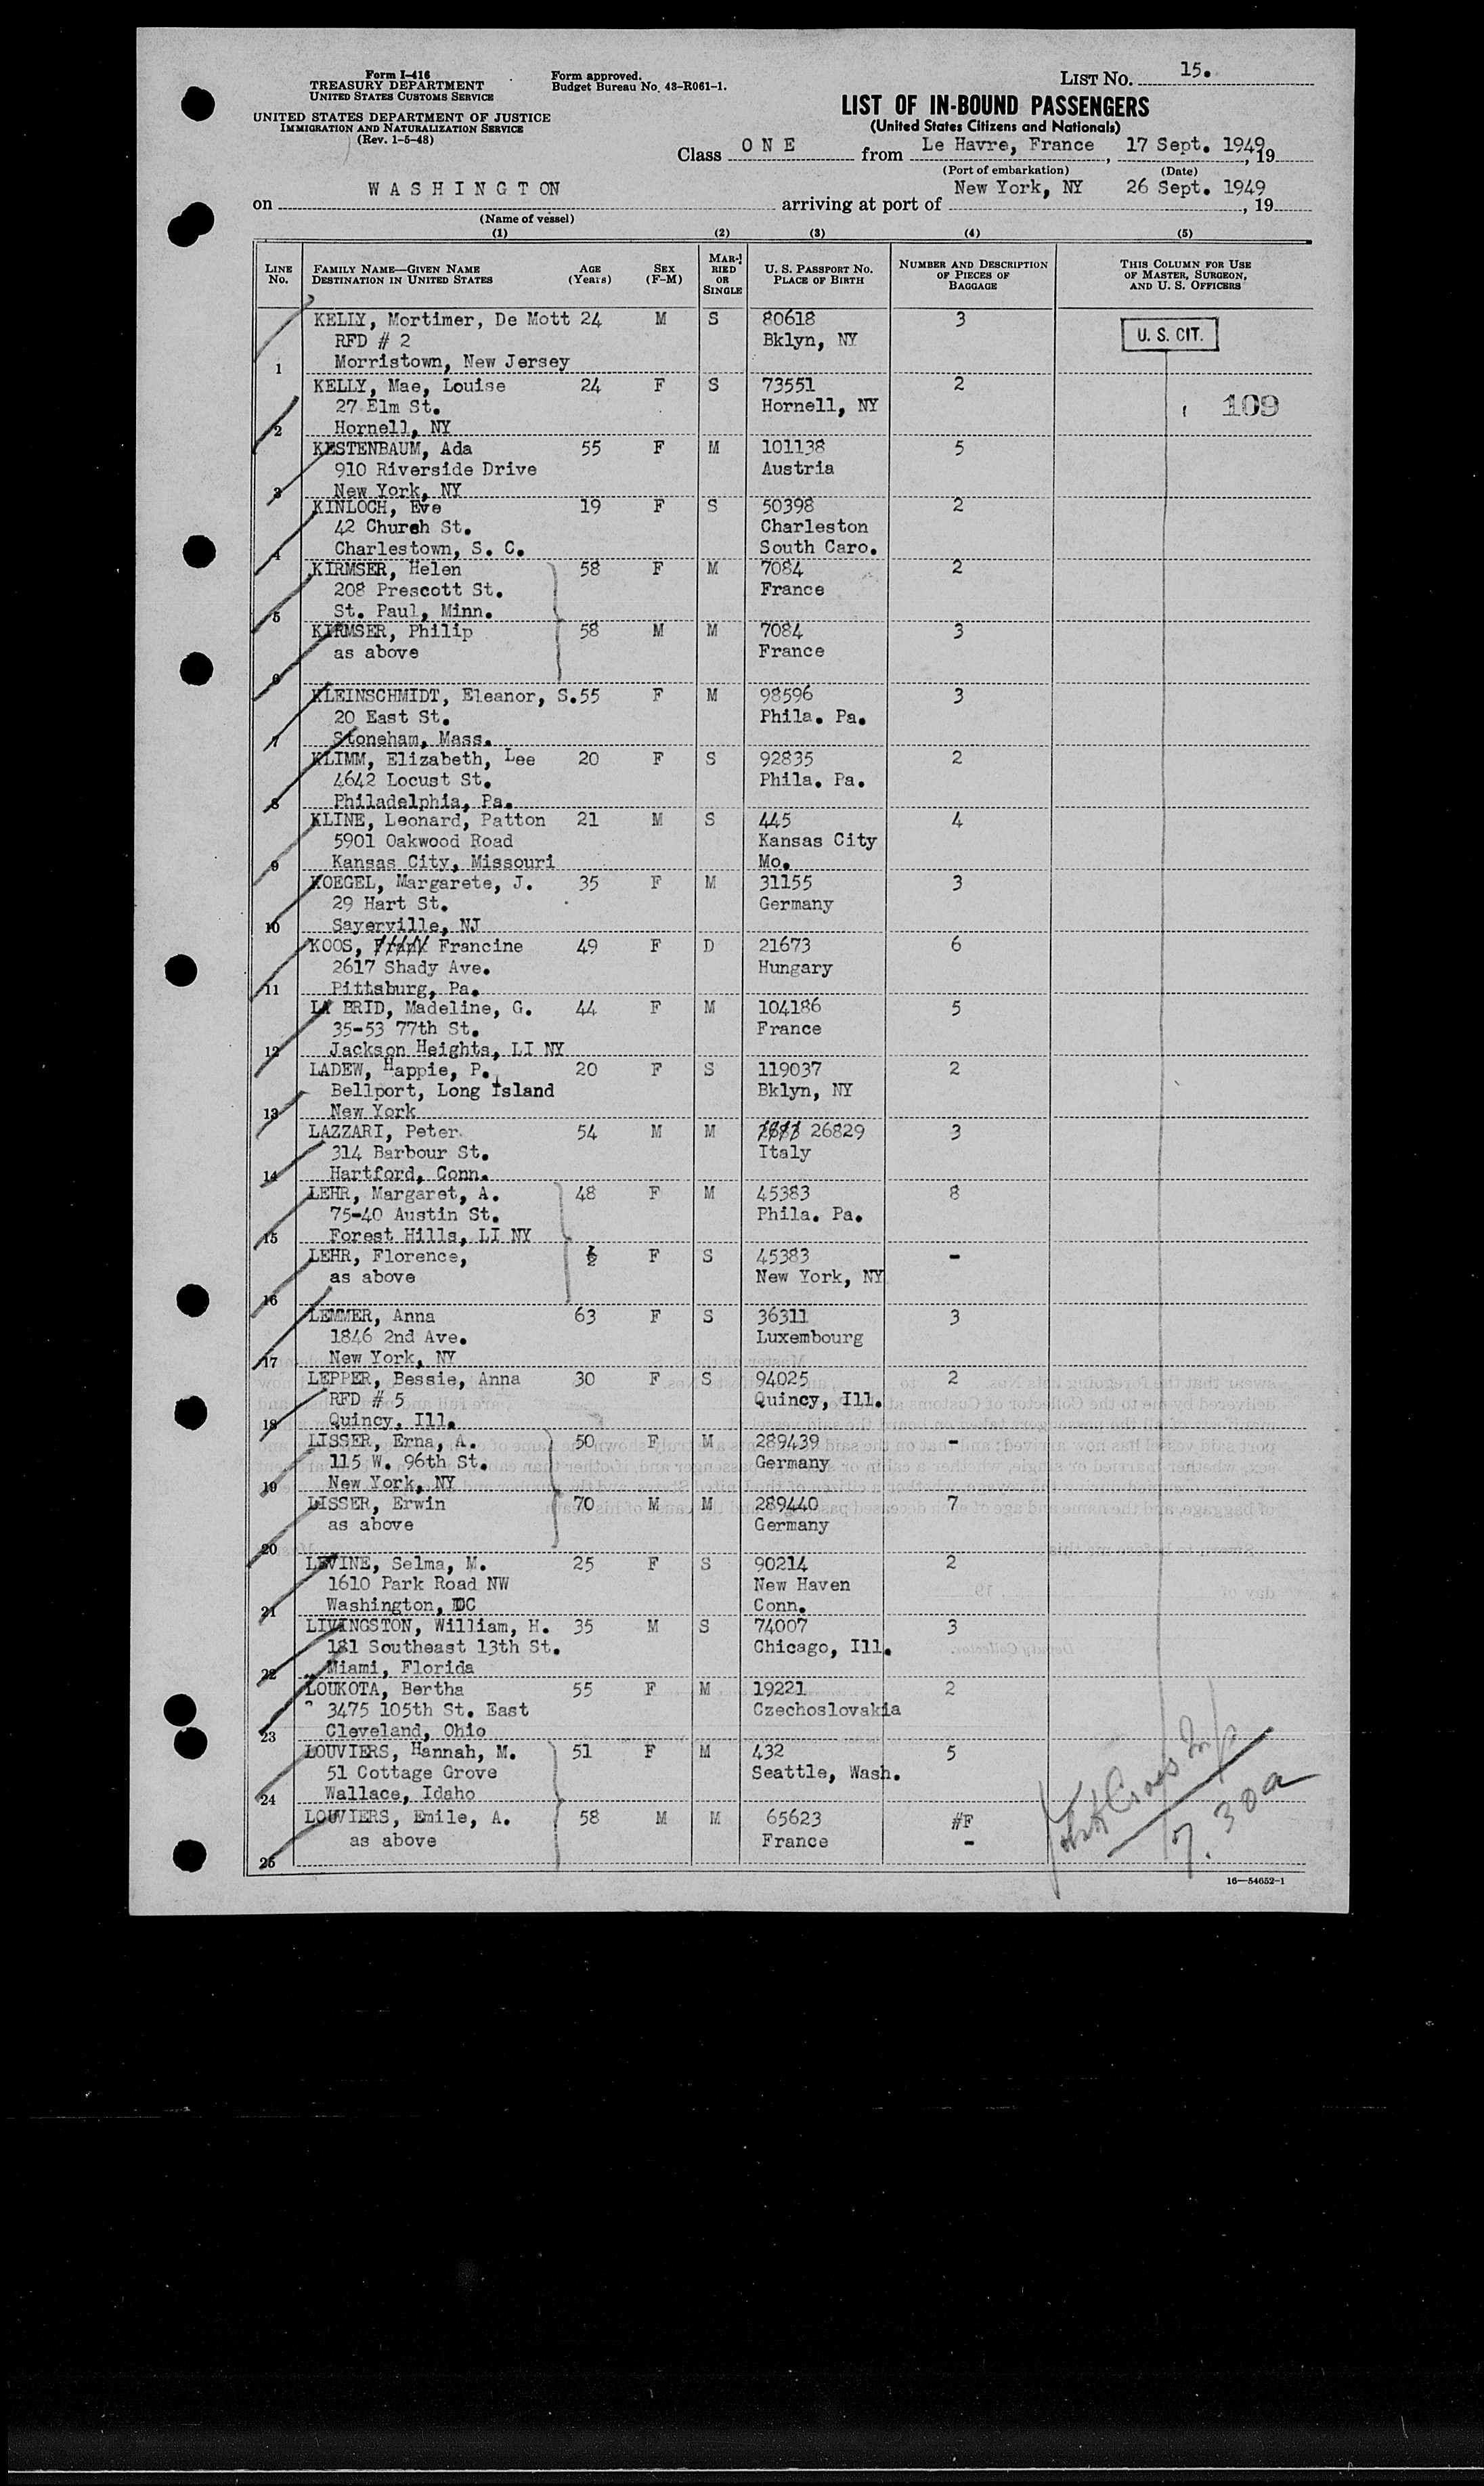 Form I-416
TREASURY DEPARTMENT
UNITED STATES CUSTOMS SERVICE
UNITED STATES DEPARTMENT OF JUSTICE
IMMIGRATION AND NATURALIZATION SERVICE
(Rev. 1-5-48)
Form approved.
Budget Bureau No. 43-R061-1.
LIST NO. 15.
LIST OF IN-BOUND PASSENGERS
(United States Citizens and Nationals)
Class O N E from Le Havre, France, 17 Sept. 1949, 19
(Port of embarkation) (Date)
on W A S H I N G T ON arriving at port of New York, NY 26 Sept. 1949, 19
(Name of vessel)
(1) (2) (3) (4) (5)
LINE No. FAMILY NAME—GIVEN NAME DESTINATION IN UNITED STATES AGE (Years) SEX (F-M) MARRIED OR SINGLE U. S. PASSPORT NO. PLACE OF BIRTH NUMBER AND DESCRIPTION OF PIECES OF BAGGAGE THIS COLUMN FOR USE OF MASTER, SURGEON, AND U. S. OFFICERS
KELLY, Mortimer, De Mott 24 M S 80618 3 U. S. CIT.
RFD # 2 Bklyn, NY
1 Morristown, New Jersey
KELLY, Mae, Louise 24 F S 73551 2
27 Elm St. Hornell, NY 109
2 Hornell, NY
KESTENBAUM, Ada 55 F M 101138 5
910 Riverside Drive Austria
3 New York, NY
KINLOCH, Eve 19 F S 50398 2
42 Church St. Charleston
4 Charlestown, S. C. South Caro.
KIRMSER, Helen 58 F M 7084 2
208 Prescott St. France
5 St. Paul, Minn.
KIRMSER, Philip 58 M M 7084 3
as above France
6
KLEINSCHMIDT, Eleanor, S. 55 F M 98596 3
20 East St. Phila. Pa.
7 Stoneham, Mass.
KLIMM, Elizabeth, Lee 20 F S 92835 2
4642 Locust St. Phila. Pa.
8 Philadelphia, Pa.
KLINE, Leonard, Patton 21 M S 445 4
5901 Oakwood Road Kansas City
9 Kansas City, Missouri Mo.
KOEGEL, Margarete, J. 35 F M 31155 3
29 Hart St. Germany
10 Sayerville, NJ
KOOS, Frank Francine 49 F D 21673 6
2617 Shady Ave. Hungary
11 Pittsburg, Pa.
LA BRID, Madeline, G. 44 F M 104186 5
35-53 77th St. France
12 Jackson Heights, LI NY
LADEW, Happie, P. 20 F S 119037 2
Bellport, Long Island Bklyn, NY
13 New York
LAZZARI, Peter 54 M M 26829 3
314 Barbour St. Italy
14 Hartford, Conn.
LEHR, Margaret, A. 48 F M 45383 8
75-40 Austin St. Phila. Pa.
15 Forest Hills, LI NY
LEHR, Florence, F S 45383 -
as above New York, NY
16
LEMMER, Anna 63 F S 36311 3
1846 2nd Ave. Luxembourg
17 New York, NY
LEPPER, Bessie, Anna 30 F S 94025 2
RFD # 5 Quincy, Ill.
18 Quincy, Ill.
LISSER, Erna, A. 50 F M 289439 -
115 W. 96th St. Germany
19 New York, NY
LISSER, Erwin 70 M M 289440 7
as above Germany
20
LEVINE, Selma, M. 25 F S 90214 2
1610 Park Road NW New Haven
21 Washington, DC Conn.
LIVINGSTON, William, H. 35 M S 74007 3
181 Southeast 13th St. Chicago, Ill.
22 Miami, Florida
LOUKOTA, Bertha 55 F M 19221 2
3475 105th St. East Czechoslovakia
23 Cleveland, Ohio
LOUVIERS, Hannah, M. 51 F M 432 5
51 Cottage Grove Seattle, Wash.
24 Wallace, Idaho
LOUVIERS, Emile, A. 58 M M 65623 #F
as above France -
25
7.30a
16—54652-1